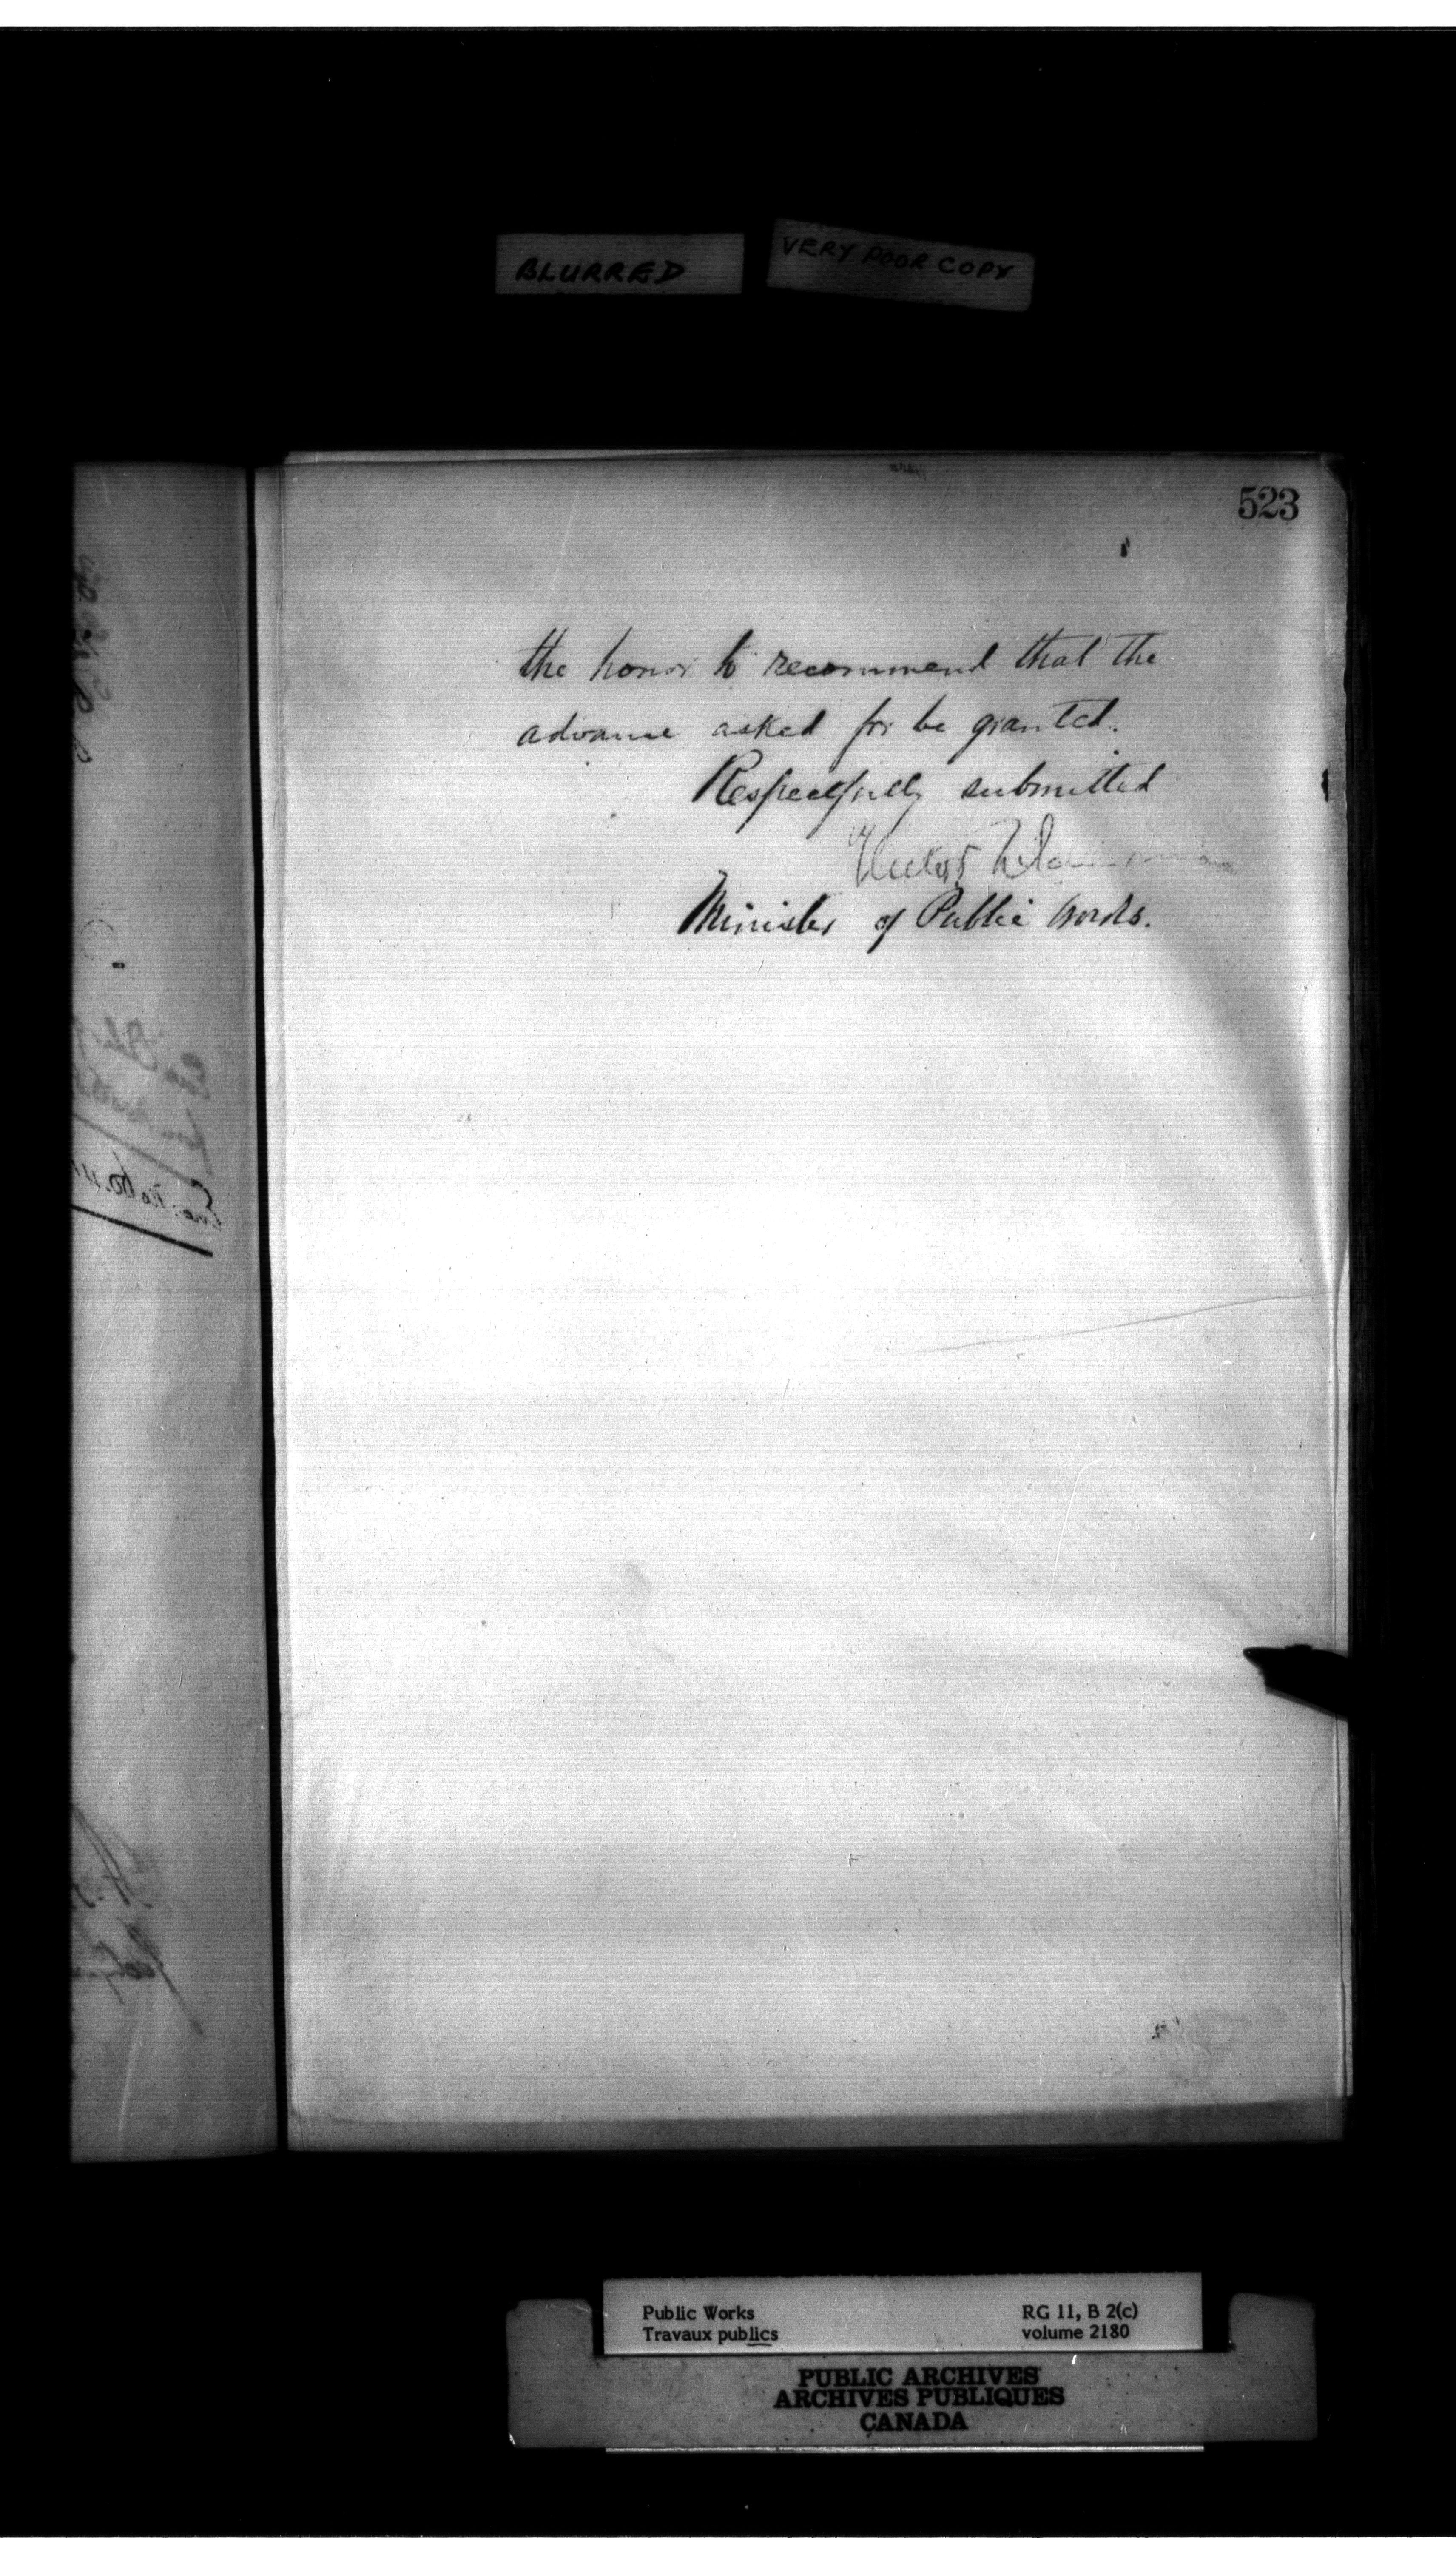 BLURRED
VERY POOR COPY
523
the honor to recommend that the
advance asked for be granted.
Respectfully submitted
Hector
Minister of Public Works.
Public Works
Travaux publics
RG 11, B 2(c)
volume 2180
PUBLIC ARCHIVES
ARCHIVES PUBLIQUES
CANADA